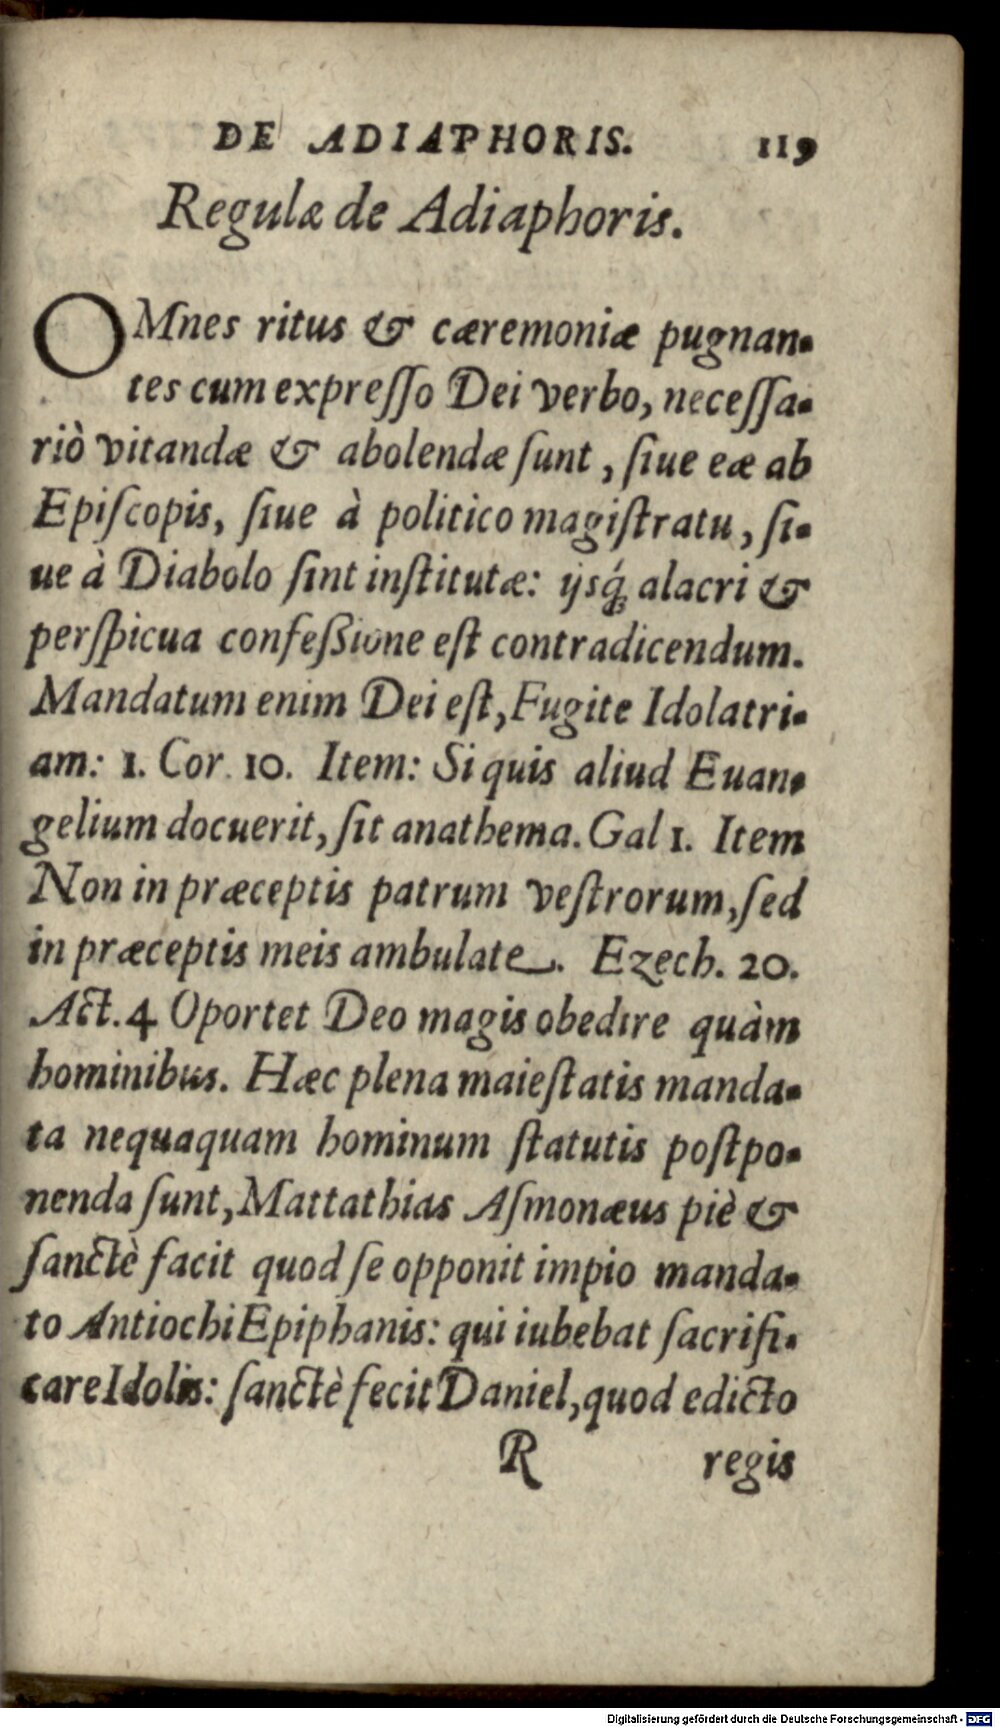 DE ADIAPHORIS. 119
Regulæ de Adiaphoris.
OMnes ritus & cæremoniæ pugnan-
tes cum expreſſo Dei verbo, neceſſa-
riò vitandæ & abolendæ ſunt, ſiue eæ ab
Epiſcopis, ſiue à politico magiſtratu, ſi-
ue à Diabolo ſint inſtitutæ: ijsq́; alacri &
perſpicua confeßione eſt contradicendum.
Mandatum enim Dei eſt, Fugite Idolatri-
am: 1. Cor. 10. Item: Si quis aliud Euan-
gelium docuerit, ſit anathema. Gal 1. Item
Non in præceptis patrum veſtrorum, ſed
in præceptis meis ambulate. Ezech. 20.
Act. 4 Oportet Deo magis obedire quàm
hominibus. Hæc plena maieſtatis manda-
ta nequaquam hominum ſtatutis poſtpo-
nenda ſunt, Mattathias Aſmonæus piè &
ſanctè facit quod ſe opponit impio manda-
to Antiochi Epiphanis: qui iubebat ſacrifi-
care Idolis: ſanctè fecit Daniel, quod edicto
R regis
Digitalisierung gefördert durch die Deutsche Forschungsgemeinschaft - DFG